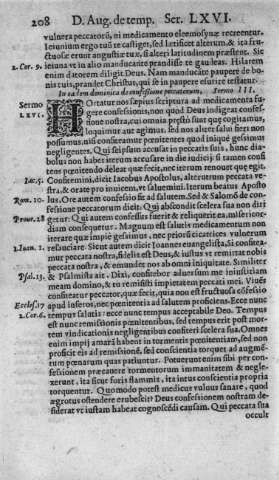 208 D. Aug. de temp. Ser. LXVI.
vulnera peccatorũ, ni medicamento eleemosynæ recreentur.
Ieiunium ergo tuũ te castiget, sed lætificet alterum. & ita fru-
ctuosæ erunt angustiæ tuæ, si alteri latitudinem præstent. Sic
2. Cor. 9. ieiuna vt in alio manducante prandisse te gaudeas. Hilarem
enim datorem diligit Deus. Nam manducante paupere de bo-
nis tuis, prandet Christus, qui se in paupere esurire testatur.
In eadem dominica de confessione peccatorum. Sermo III.
Sermo HOrtatur nos sæpius scriptura ad medicamenta fu-
LXVI. gere confessionis, non quod Deus indigeat confes-
sione nostra, cui omnia præsto sunt quæ cogitamus,
loquimur aut agimus. sed nos aliter salui fieri non
possumus, nisi confiteamur pœnitentes quod iniquè gessimus
negligentes. Qui seipsum accusat in peccatis suis, hunc dia-
bolus non habet iterum accusare in die iudicij. si tamen confi-
tens pœnitendo deleat quæ fecit, nec iterum renouet quæ egit.
Iac. 5. Confitemini, dicit Iacobus Apostolus, alterutrum peccata ve-
stra, & orate pro inuicem, vt saluemini. Iterum beatus Aposto
Rom. 10. lus. Ore autem confessio fit ad salutem. Sed & Salomõ de con-
fessione peccatorum dicit. Qui abscondit scelera sua non diri-
Prouer. 28 getur. Qui autem confessus fuerit & reliquerit ea, misericor-
diam consequetur. Magnum est salutis medicamentum non
iterare quæ impiè gessimus, nec prioris cicatrices vulnerum
1. Ioan. 1. resauciare. Sicut autem dicit Ioannes euangelista, Si confitea-
mur peccata nostra, fidelis est Deus, & iustus vt remittat nobis
peccata nostra, & emundet nos ab omni iniquitate. Similiter
Psal. 13. & Psalmista ait. Dixi, confitebor aduersum me iniustitiam
meam domino, & tu remisisti impietatem peccati mei. Viuẽs
confiteatur peccator, quæ fecit, quia non est fructuosa cõfessio
Eccles. 17 apud inferos, nec pœnitentia ad salutem proficiens. Ecce nunc
2. Cor. 6. tempus salutis: ecce nunc tempus acceptabile Deo. Tempus
est nunc remissionis pœnitentibus, sed tempus erit post mor-
tem vindicationis negligentibus confiteri scelera sua. Omnes
enim impij amarã habent in tormentis pœnitentiam, sed non
proficit eis ad remissionẽ, sed conscientia torquet ad augmẽ-
tum pœnarum quas patiuntur. Potuerunt enim sibi per con-
fessionem præcauere tormentorum immanitatem & negle-
xerunt, ita sicut foris flammis, ita intus conscientia propria
torquentur. Quomodo potest medicus vulnus sanare, quod
ægrotus ostendere erubescit? Deus confessionem nostram de-
siderat vt iustam habeat cognoscẽdi causam. Qui peccata sua
occult